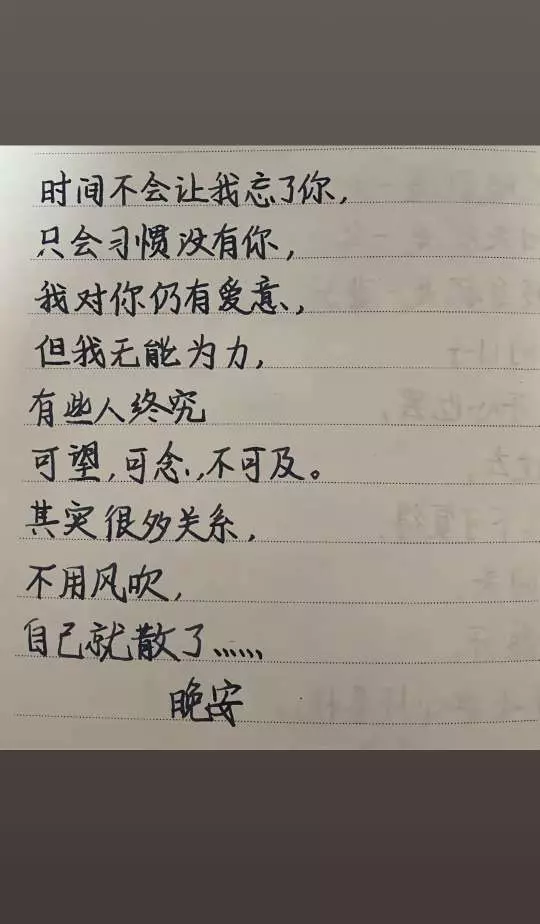 时间不会让我忘了你,
只会习惯没有你,
我对你仍有爱意,
但我无能为力,
有些人终究
可望,可念,不可及。
其实很多关系,
不用风吹,
自己就散了......
晚安